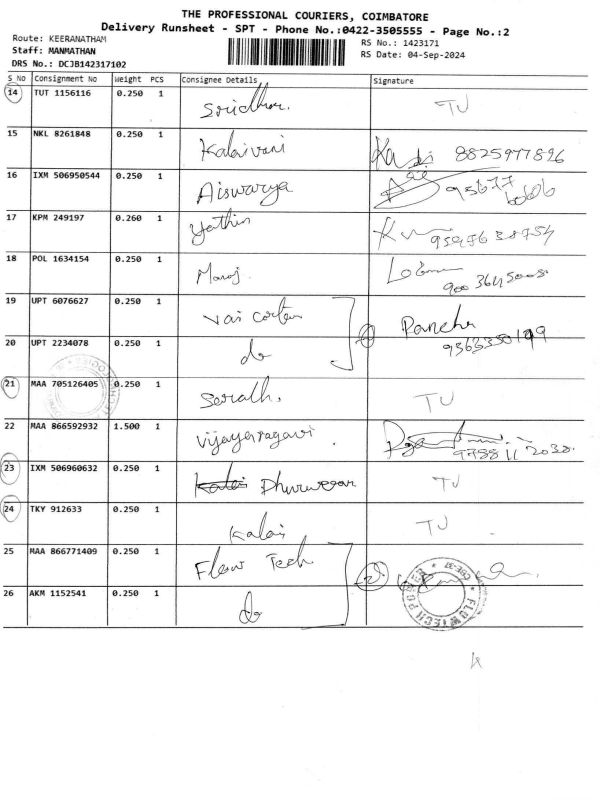 THE PROFESSIONAL COURIERS, COIMBATORE
Delivery Runsheet - SPT - Phone No.:0422-3505555 - Page No.:2
Route: KEERANATHAM
RS No.: 1423171
Staff: MANMATHAN
RS Date: 04-Sep-2024
DRS No.: DCJB142317102
S No Consignment No Weight PCS Consignee Details Signature
14 TUT 1156116 0.250 1 Sridhar. TU
15 NKL 8261848 0.250 1 Kalaivani 8825977896
16 IXM 506950544 0.250 1 Aiswarya 95677
17 KPM 249197 0.260 1 Yathin
18 POL 1634154 0.250 1 Manoj
19 UPT 6076627 0.250 1 Pancha
20 UPT 2234078 0.250 1 do
21 MAA 705126405 0.250 1 TU
22 MAA 866592932 1.500 1 Vijayaragavi
23 IXM 506960632 0.250 1 TU
24 TKY 912633 0.250 1 Kalai TU
25 MAA 866771409 0.250 1 Flow Tech
26 AKM 1152541 0.250 1 do
FLOWTECH POWER * CBE-37 *